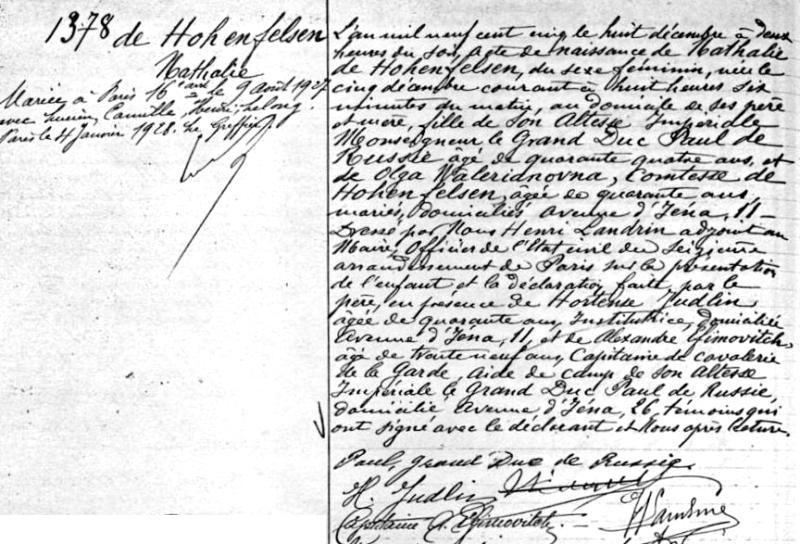 1378 de Hohenfelsen
Nathalie
Mariée à Paris 16e arrt le 9 août 1927
avec Lucien, Camille, Lelong.
Paris le 4 Janvier 1928. Le Greffier
L'an mil neuf cent cinq le huit décembre à deux
heures du soir, Acte de naissance de Nathalie
de Hohenfelsen, du sexe féminin, née le
cinq décembre courant à huit heures six
minutes du matin, au domicile de ses père
et mère, fille de Son Altesse Impériale
Monseigneur le Grand Duc Paul de
Russie âgé de quarante quatre ans, et
de Olga Walerianovna, Comtesse de
Hohenfelsen, âgée de quarante ans
mariés, domiciliés avenue d'Iéna, 11 –
Dressé par Nous Henri Landrin adjoint au
Maire, Officier de l'Etat civil du Seizième
arrondissement de Paris sur la présentation
de l'enfant et la déclaration faite par le
père, en présence de Hortense Judlin
âgée de quarante ans, Institutrice, domiciliée
Avenue d'Iéna, 11, et de Alexandre Efimovitch,
âgé de trente neuf ans, Capitaine de cavalerie
de la Garde, aide de camp de Son Altesse
Impériale le Grand Duc Paul de Russie,
domicilié Avenue d'Iéna, 26, témoins qui
ont signé avec le déclarant et Nous après lecture.
Paul, Grand Duc de Russie.
H. Judlin
Capitaine A. Efimovitch